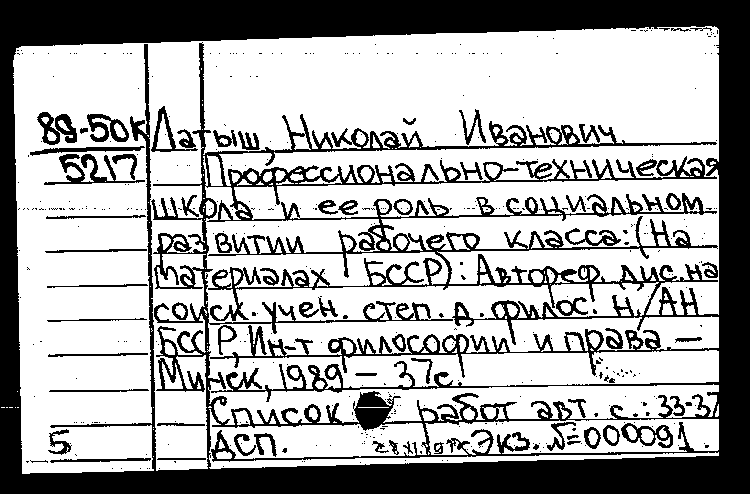 89-50к Латыш, Николай Иванович.
5217 Профессионально-техническая
школа и ее роль в социальном
развитии рабочего класса: (На
материалах БССР): Автореф. дис. на
соиск. учен. степ. д. филос. н./АН
БССР, Ин-т философии и права. —
Минск, 1989 — 37с.
Список работ авт. с.: 33-37
5 ДСП. Экз. №=000091.